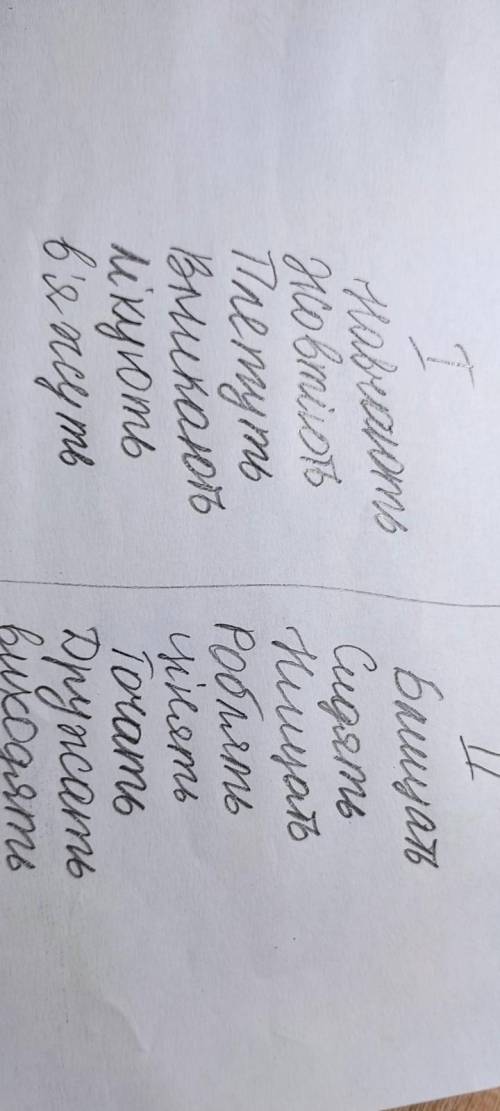 I
Навчають
Жовтіють
Плетуть
Вмикають
Лікують
в'яжуть
II
Блищать
Сидять
Нищать
Роблять
цінять
Точать
Дружать
виходять